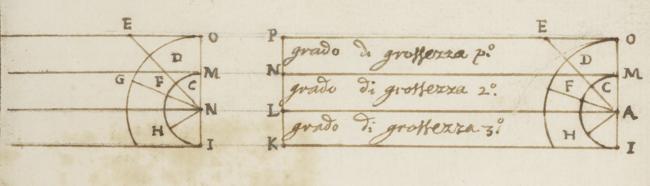 E O P E O
D grado di grossezza p.º D
M N M
G F C grado di grossezza 2.º F C
N L A
H grado di grossezza 3.º H
I K I